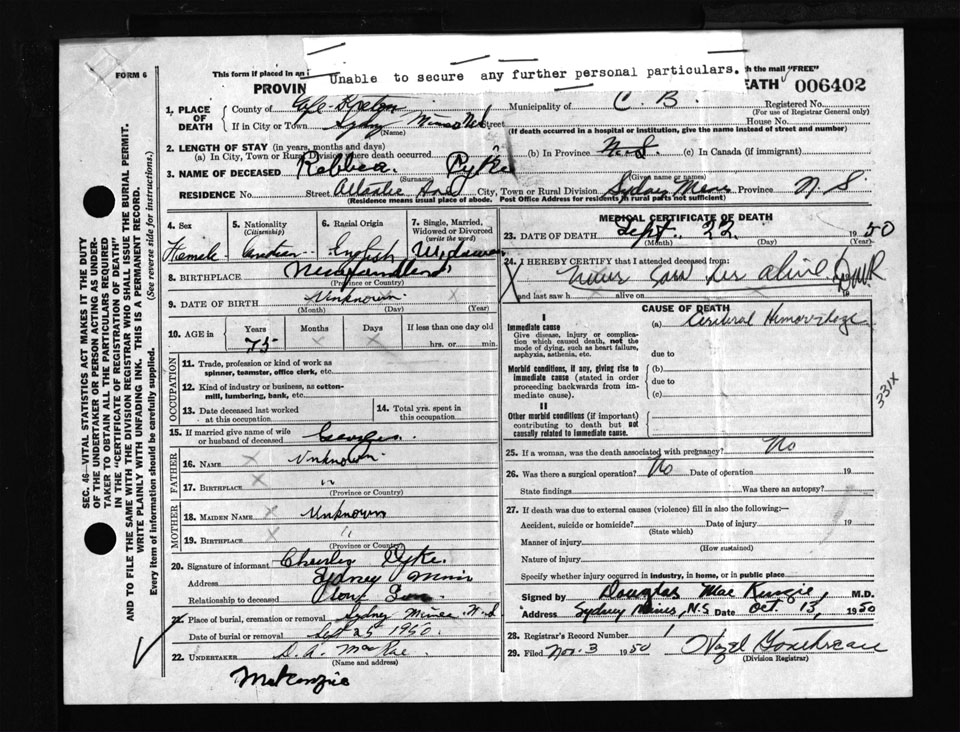 FORM 6
This form if placed in an
Unable to secure any further personal particulars.
h the mail "FREE"
PROVIN
EATH 006402
SEC. 46—VITAL STATISTICS ACT MAKES IT THE DUTY
OF THE UNDERTAKER OR PERSON ACTING AS UNDER-
TAKER TO OBTAIN ALL THE PARTICULARS REQUIRED
IN THE "CERTIFICATE OF REGISTRATION OF DEATH"
AND TO FILE THE SAME WITH THE DIVISION REGISTRAR WHO SHALL ISSUE THE BURIAL PERMIT.
WRITE PLAINLY WITH UNFADING INK. THIS IS A PERMANENT RECORD.
Every item of information should be carefully supplied. (See reverse side for instructions.)
1. PLACE OF DEATH
County of Cape Breton Municipality of C. B. Registered No.
(For use of Registrar General only)
If in City or Town Sydney Mines N.S. Street House No.
(Name) (If death occurred in a hospital or institution, give the name instead of street and number)
2. LENGTH OF STAY (in years, months and days)
(a) In City, Town or Rural Division where death occurred (b) In Province N.S. (c) In Canada (if immigrant)
3. NAME OF DECEASED Rebbca. Pyke
(Surname) (Given name or names)
RESIDENCE No. Street Atlantic City, Town or Rural Division Sydney Mines Province N S.
(Residence means usual place of abode. Post Office Address for residents in rural parts not sufficient)
4. Sex
Female
5. Nationality
(Citizenship)
Canadian
6. Racial Origin
English
7. Single, Married,
Widowed or Divorced
(write the word)
Widower
8. BIRTHPLACE Newfoundland
(Province or Country)
9. DATE OF BIRTH Unknown. X
(Month) (Day) (Year)
10. AGE in
Years Months Days If less than one day old
75 X X hrs. or min.
OCCUPATION
11. Trade, profession or kind of work as
spinner, teamster, office clerk, etc.
12. Kind of industry or business, as cotten-
mill, lumbering, bank, etc.
13. Date deceased last worked
at this occupation
14. Total yrs. spent in
this occupation
15. If married give name of wife
or husband of deceased George.
FATHER
16. NAME X Unknown.
17. BIRTHPLACE X "
(Province or Country)
MOTHER
18. MAIDEN NAME X Unknown
19. BIRTHPLACE X "
(Province or Country)
20. Signature of informant Charles Pyke.
Address Sydney Mines
Relationship to deceased Son
21. Place of burial, cremation or removal Sydney Mines N.S
Date of burial or removal Sept 25 1950.
22. UNDERTAKER D. A. MacRae.
(Name and address)
McKenzie
MEDICAL CERTIFICATE OF DEATH
23. DATE OF DEATH Sept. 22 1950
(Month) (Day) (Year)
24. I HEREBY CERTIFY that I attended deceased from:
X never saw her alive.
and last saw h alive on 19
CAUSE OF DEATH
I
Immediate cause
Give disease, injury or complica-
tion which caused death, not the
mode of dying, such as heart failure,
asphyxia, asthenia, etc.
(a) Cerebral Hemorrhage
due to
Morbid conditions, if any, giving rise to
immediate cause (stated in order
proceeding backwards from im-
mediate cause).
(b)
due to
(c)
331X
II
Other morbid conditions (if important)
contributing to death but not
causally related to immediate cause.
25. If a woman, was the death associated with pregnancy? No
26. Was there a surgical operation? No Date of operation 19
State findings Was there an autopsy?
27. If death was due to external causes (violence) fill in also the following:—
Accident, suicide or homicide? Date of injury 19
(State which)
Manner of injury
(How sustained)
Nature of injury
Specify whether injury occurred in industry, in home, or in public place
Signed by Douglas MacKenzie, M.D.
Address Sydney Mines, N.S Date Oct. 13, 1950
28. Registrar's Record Number 1
29. Filed Nov. 3 1950 Hazel
(Division Registrar)